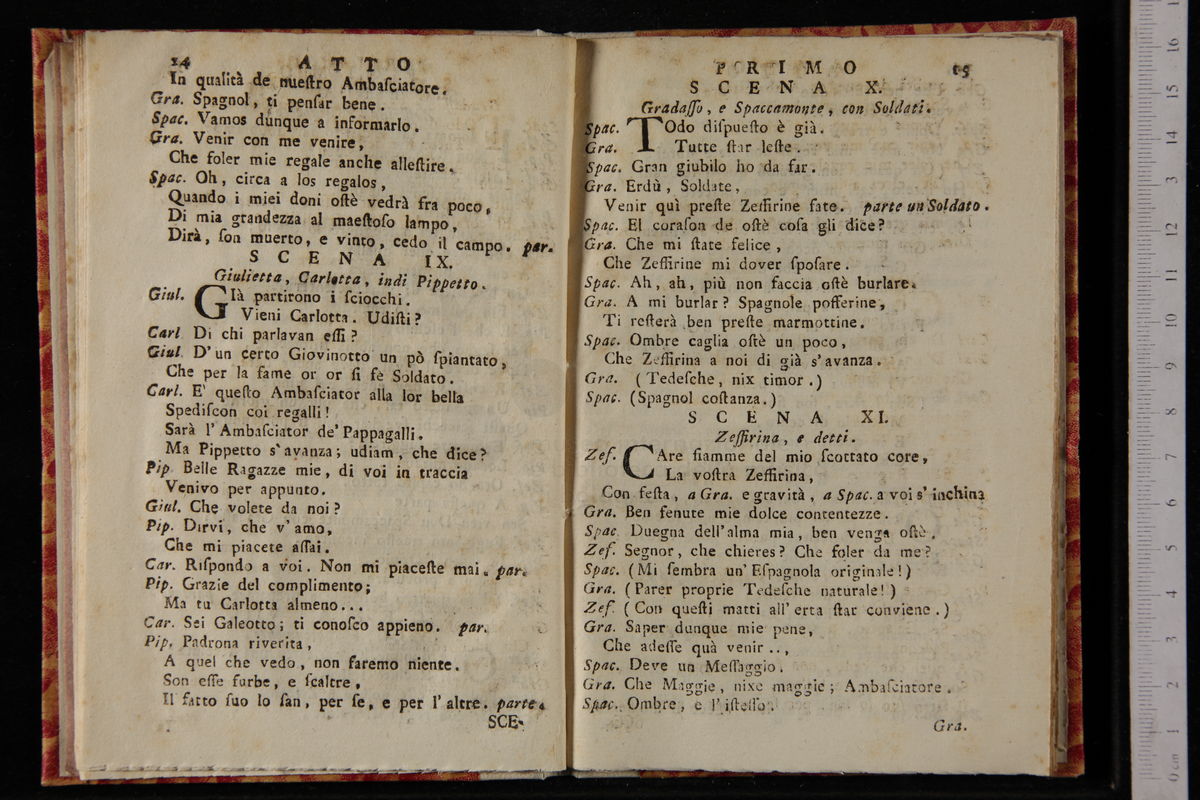 14 ATTO
In qualità de nueſtro Ambaſciatore.
Gra. Spagnol, ti penſar bene.
Spac. Vamos dunque a informarlo.
Gra. Venir con me venire,
Che foler mie regale anche alleſtire.
Spac. Oh, circa a los regalos,
Quando i miei doni oſtè vedrà fra poco,
Di mia grandezza al maeſtoſo lampo,
Dirà, ſon muerto, e vinto, cedo il campo. par.
SCENA IX.
Giulietta, Carlotta, indi Pippetto.
Giul. GIà partirono i ſciocchi.
Vieni Carlotta. Udiſti?
Carl Di chi parlavan eſſi?
Giul D'un certo Giovinotto un pò ſpiantato,
Che per la fame or or ſi fè Soldato.
Carl. E' queſto Ambaſciator alla lor bella
Spediſcon coi regalli!
Sarà l'Ambaſciator de' Pappagalli.
Ma Pippetto s'avanza; udiam, che dice?
Pip. Belle Ragazze mie, di voi in traccia
Venivo per appunto.
Giul. Che volete da noi?
Pip. Dirvi, che v'amo,
Che mi piacete aſſai.
Car. Riſpondo a voi. Non mi piaceſte mai. par.
Pip. Grazie del complimento;
Ma tu Carlotta almeno...
Car. Sei Galeotto; ti conoſco appieno. par.
Pip. Padrona riverita,
A quel che vedo, non faremo niente.
Son eſſe furbe, e ſcaltre,
Il fatto ſuo lo ſan, per ſe, e per l'altre. parte.
SCE-
PRIMO 15
SCENA X.
Gradaſſo, e Spaccamonte, con Soldati.
Spac. TOdo diſpueſto è già.
Gra. Tutte ſtar leſte.
Spac. Gran giubilo ho da far.
Gra. Erdù, Soldate,
Venir quì preſte Zeffirine fate. parte un Soldato.
Spac. El coraſon de oſtè coſa gli dice?
Gra. Che mi ſtate felice,
Che Zeffirine mi dover ſpoſare.
Spac. Ah, ah, più non faccia oſtè burlare.
Gra. A mi burlar? Spagnole poſſerine,
Ti reſterà ben preſte marmottine.
Spac. Ombre caglia oſtè un poco,
Che Zeffirina a noi di già s'avanza.
Gra. (Tedeſche, nix timor.)
Spac. (Spagnol coſtanza.)
SCENA XI.
Zeffirina, e detti.
Zef. CAre fiamme del mio ſcottato core,
La voſtra Zeffirina,
Con feſta, a Gra. e gravità, a Spac. a voi s'inchina
Gra. Ben fenute mie dolce contentezze.
Spac. Duegna dell'alma mia, ben venga oſtè.
Zef. Segnor, che chieres? Che foler da me?
Spac. (Mi ſembra un'Eſpagnola originale!)
Gra. (Parer proprie Tedeſche naturale!)
Zef. (Con queſti matti all'erta ſtar conviene.)
Gra. Saper dunque mie pene,
Che adeſſe quà venir ..,
Spac. Deve un Meſſaggio.
Gra. Che Maggie, nixe maggie; Ambaſciatore.
Spac. Ombre, e l'iſteſſo.
Gra.